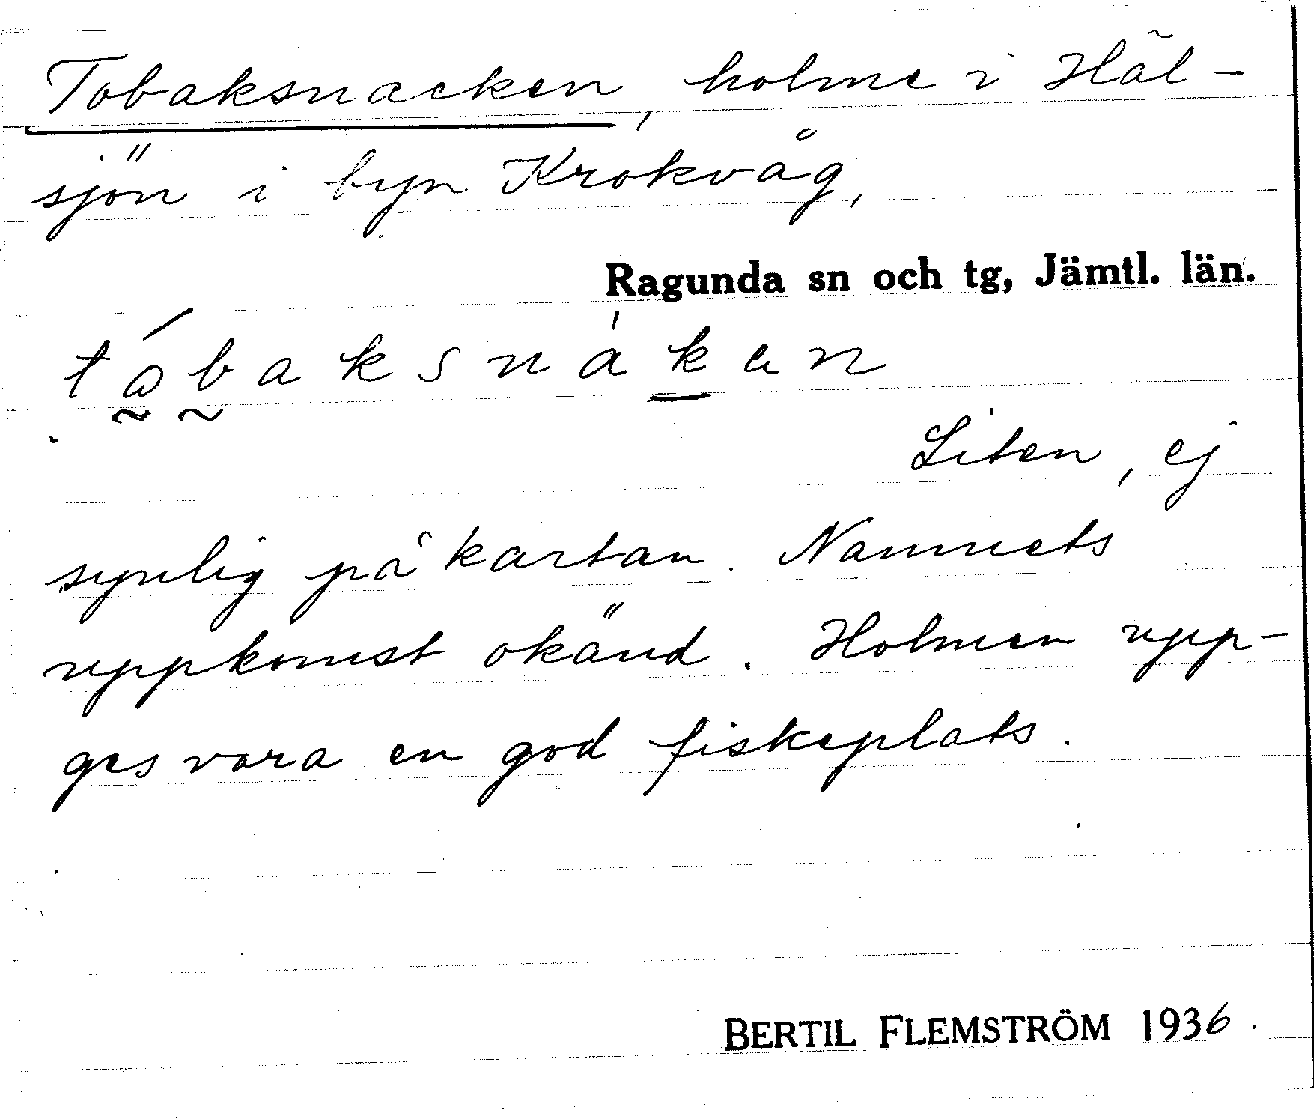 Tobaksnacken, holme i Häl-
sjön i byn Krokvåg,
Ragunda sn och tg, Jämtl. län.
tóbaksnàken
Liten, ej
synlig på kartan. Namnets
uppkomst okänd. Holmen upp-
ges vara en god fiskeplats.
BERTIL FLEMSTRÖM 1936.